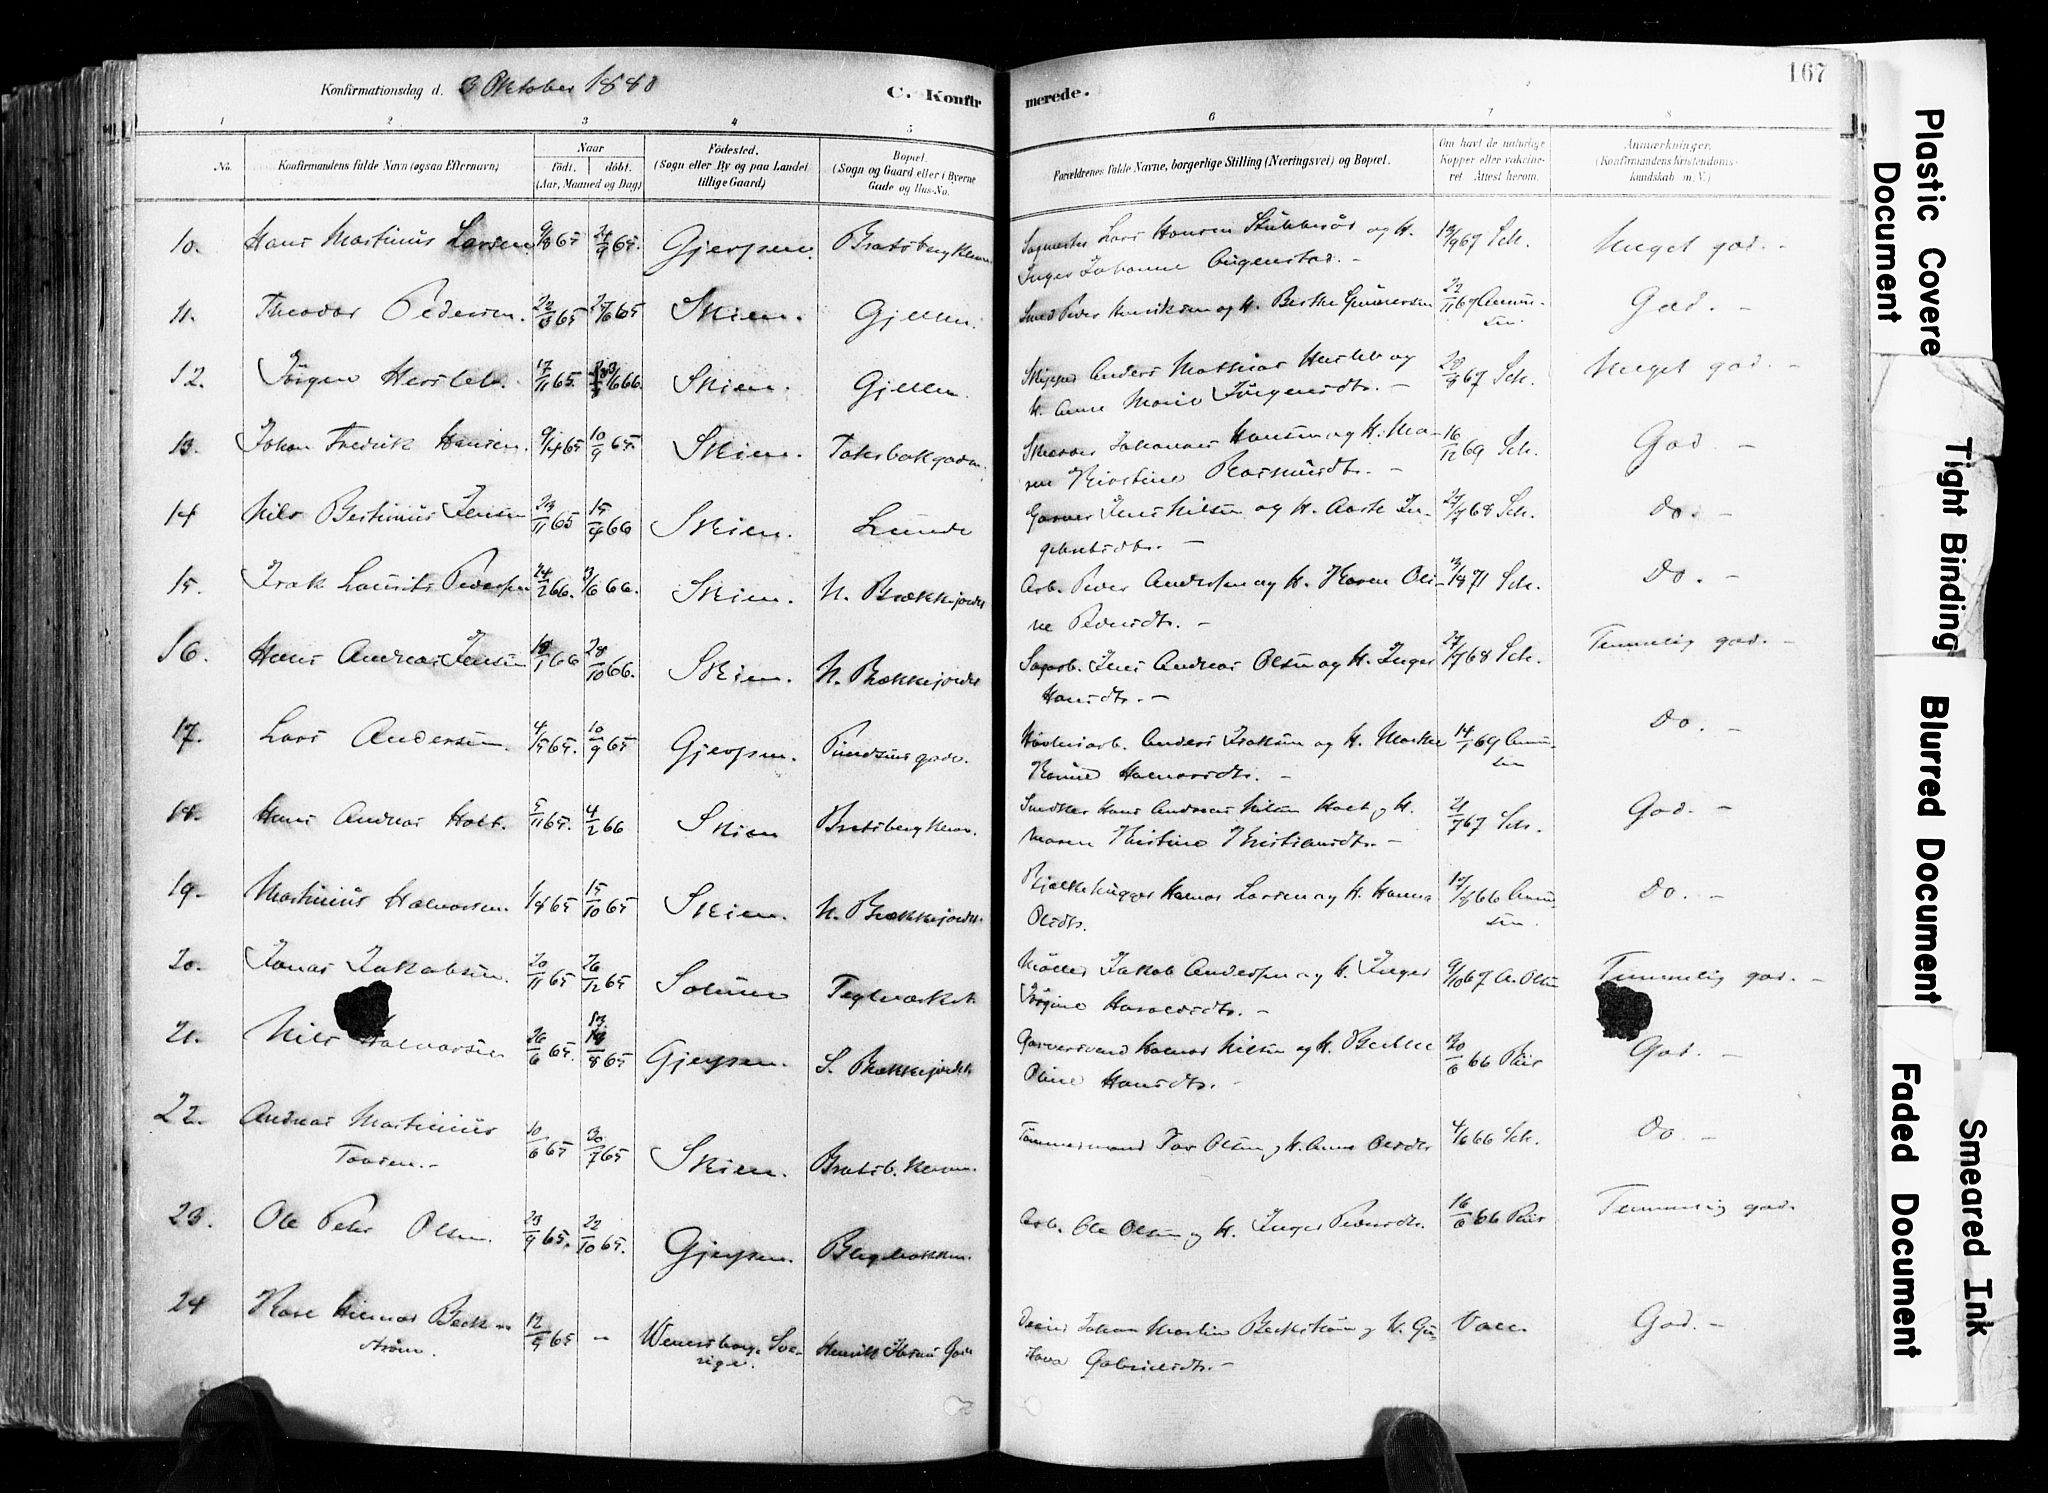 Konfirmationsdag d. 3 Oktober 1880
C. Konfirmerede.
167
1 2 3 4 5 6 7 8
No.
Konfirmandens fulde Navn (ogsaa Efternavn)
Naar
født. døbt.
(Aar, Maaned og Dag)
Fødested.
(Sogn eller By og paa Landet
tillige Gaard)
Bopæl.
(Sogn og Gaard eller i Byerne
Gade og Hus-No.
Forældrenes fulde Navne, borgerlige Stilling (Næringsvei) og Bopæl.
Om havt de naturlige
Kopper eller vaccine-
ret Attest herom.
Anmærkninger.
(Konfirmandens Kristendoms-
kundskab m. V.)
10. Hans Martinius Larsen 9/8 65 24/9 65. Gjerpen. Bratsbergklev. Sagmester Lars Hansen Stubberød og H. 13/9 67 Sch. Meget god. -
Inger Johanne Augenstad. -
11. Theodor Pedersen. 22/3 65 5/6 65 Skien. Gjellen. Smed Peder Henriksen og H. Berthe Gundersen 22/11 67 Amun- God. -
sen.
12. Jörgen Hersleb. 17/11 65. 6 66. Skien. Gjellen. Skipper Anders Mathias Hersleb og 20/8 67 Sch. Meget god. -
H. Anne Marie Jörgensdtr. -
13. Johan Fredrik Hansen. 9/4 65 10/9 65 Skien. Torkbakgaden. Johannes Hansen og H. Ma- 16/12 69 Sch. God. -
ren Kirstine Rasmusdtr. -
14 Nils Bertinius Jensen 23/11 65 15/4 66 Skien. Lunde Garver Jens Nilsen og H. Aaste In- 27/7 68 Sch. Do. -
gebretsdtr. -
15. Isak Laurits Pedersen 24/2 66. 3/6 66. Skien. N. Brækkejordet Arb. Peder Andersen og H. Karen Oli- 13/8 71 Sch. Do. -
ne Pedersdtr. -
16. Hans Andreas Jensen 18/1 66 28/10 66. Skien. N. Brækkejordet Sagarb. Jens Andreas Olsen og H. Inger 27/7 68 Sch. Temmelig god. -
Hansdtr. -
17. Lars Andersen. 4/5 65. 10/9 65 Gjerpen. Pundsens gade. Anders Isaksen og H. Marthe 14/1 69 Amun- Do. -
sen
Karine Halvorsdtr. -
18. Hans Andreas Holt. 5/11 65. 4/2 66 Skien Bratsbergklev. Snedker Hans Andreas Nilsen Holt og H. 21/7 67 Sch. God. -
Maren Kristine Kristiansdtr. -
19. Martinius Halvorsen. 1/4 65 15/10 65 Skien. N. Brækkejordet. Bjelkehugger Halvor Larsen og H. Hanna 17/8 66 Amun- Do. -
sen.
Olsdtr.
20. Jonas Jakobsen. 20/11 65 26/12 65 Solum Teglverket Møller Jakob Andersen og H. Inger 9/10 67 A. Olsen Temmelig god. -
Jörgine Haraldsdtr. -
21. Nils Halvorsen 26/6 65. 8 65 Gjerpen. S. Brækkejordet Garversvend Halvor Nilsen og H. Berthe 20/6 66 Riis God. -
Oline Hansdtr. -
22. Andreas Martinius 10/6 65 30/7 65 Skien. Bratsb. kleven. Tømmermand Tor Olsen og H. Anne Olsdtr 4/6 66 Sch. Do. -
Torsen. -
23. Ole Peter Olsen. 23/9 65. 22/10 65. Gjerpen. Blegebakken. Arb. Ole Olsen og H. Inger Pedersdtr. 16/6 66 Riis Temmelig god.
24 Karl Hilmar Beck- 12/5 65 - Wenersborg. Sve- Henrik Ibsens Gade Johan Martin Beckström og H. Gu- Vacc. God. -
ström. rige.
stava Gabrielsdtr. -
Plastic Covere
Document
Tight Binding
Blurred Document
Faded Document
Smeared Ink